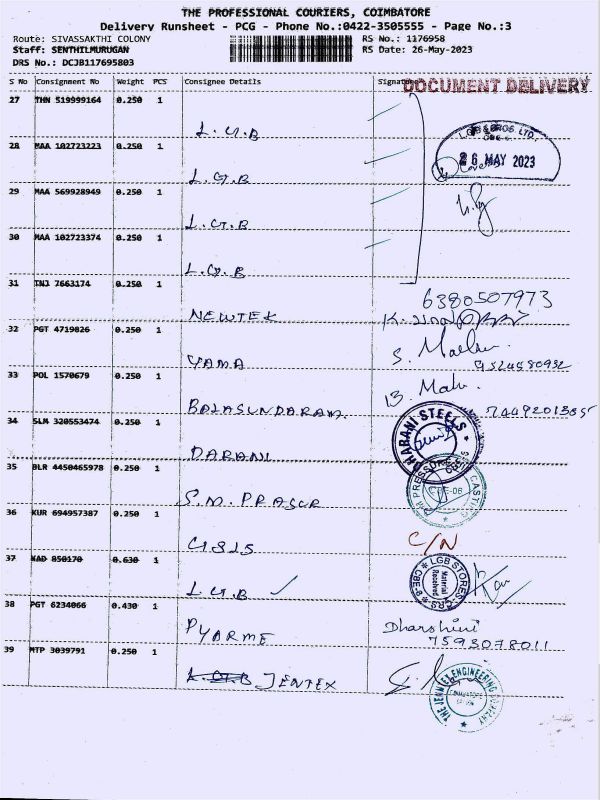 THE PROFESSIONAL COURIERS, COIMBATORE
Delivery Runsheet - PCG - Phone No.:0422-3505555 - Page No.:3
Route: SIVASSAKTHI COLONY RS No.: 1176958
Staff: SENTHILMURUGAN RS Date: 26-May-2023
DRS No.: DCJB117695803
S No Consignment No Weight PCS Consignee Details Signature
DOCUMENT DELIVERY
27 THN 519999164 0.250 1
L.G.B
LGB & BROS. LTD.,
26 MAY 2023
28 MAA 102723223 0.250 1
L.G.B
29 MAA 569928949 0.250 1
L.G.B
30 MAA 102723374 0.250 1
L.G.B
31 TNJ 7663174 0.250 1
6380507973
NEWTEK
32 PGT 4719826 0.250 1
YAMA
33 POL 1570679 0.250 1
BALASUNDARAM
34 SLM 320553474 0.250 1
DHARANI STEELS
DARANI
35 BLR 4450465978 0.250 1
S.M. PRASUR
36 KUR 694957387 0.250 1
C/N
37 KAD 850170 0.630 1
LGB STORES
Material Received
L G B
38 PGT 6234066 0.430 1
PYARME Dharshini
7593078011
39 MTP 3039791 0.250 1
JENTEX